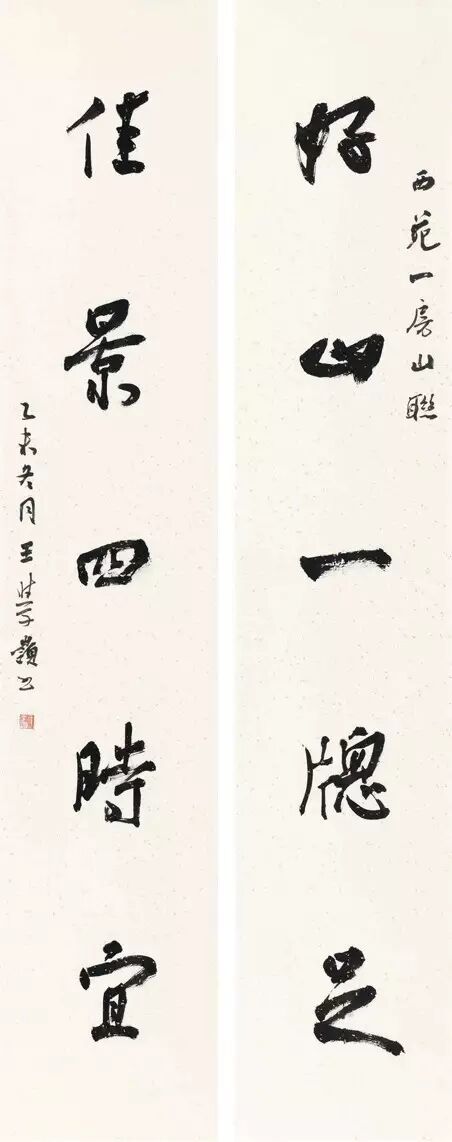 西苑一房山聯
好山一牕足
佳景四時宜
乙未冬月王學嶺書